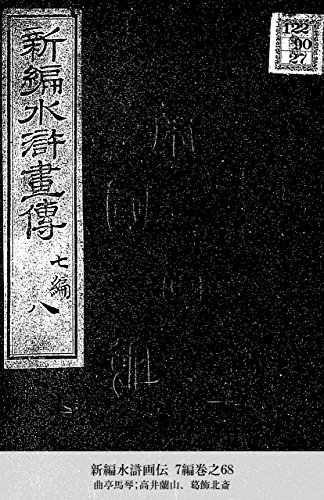 新編水滸畫傳
七編
八
122
90
27
新編水滸画伝 7編巻之68
曲亭馬琴;高井蘭山、葛飾北斎